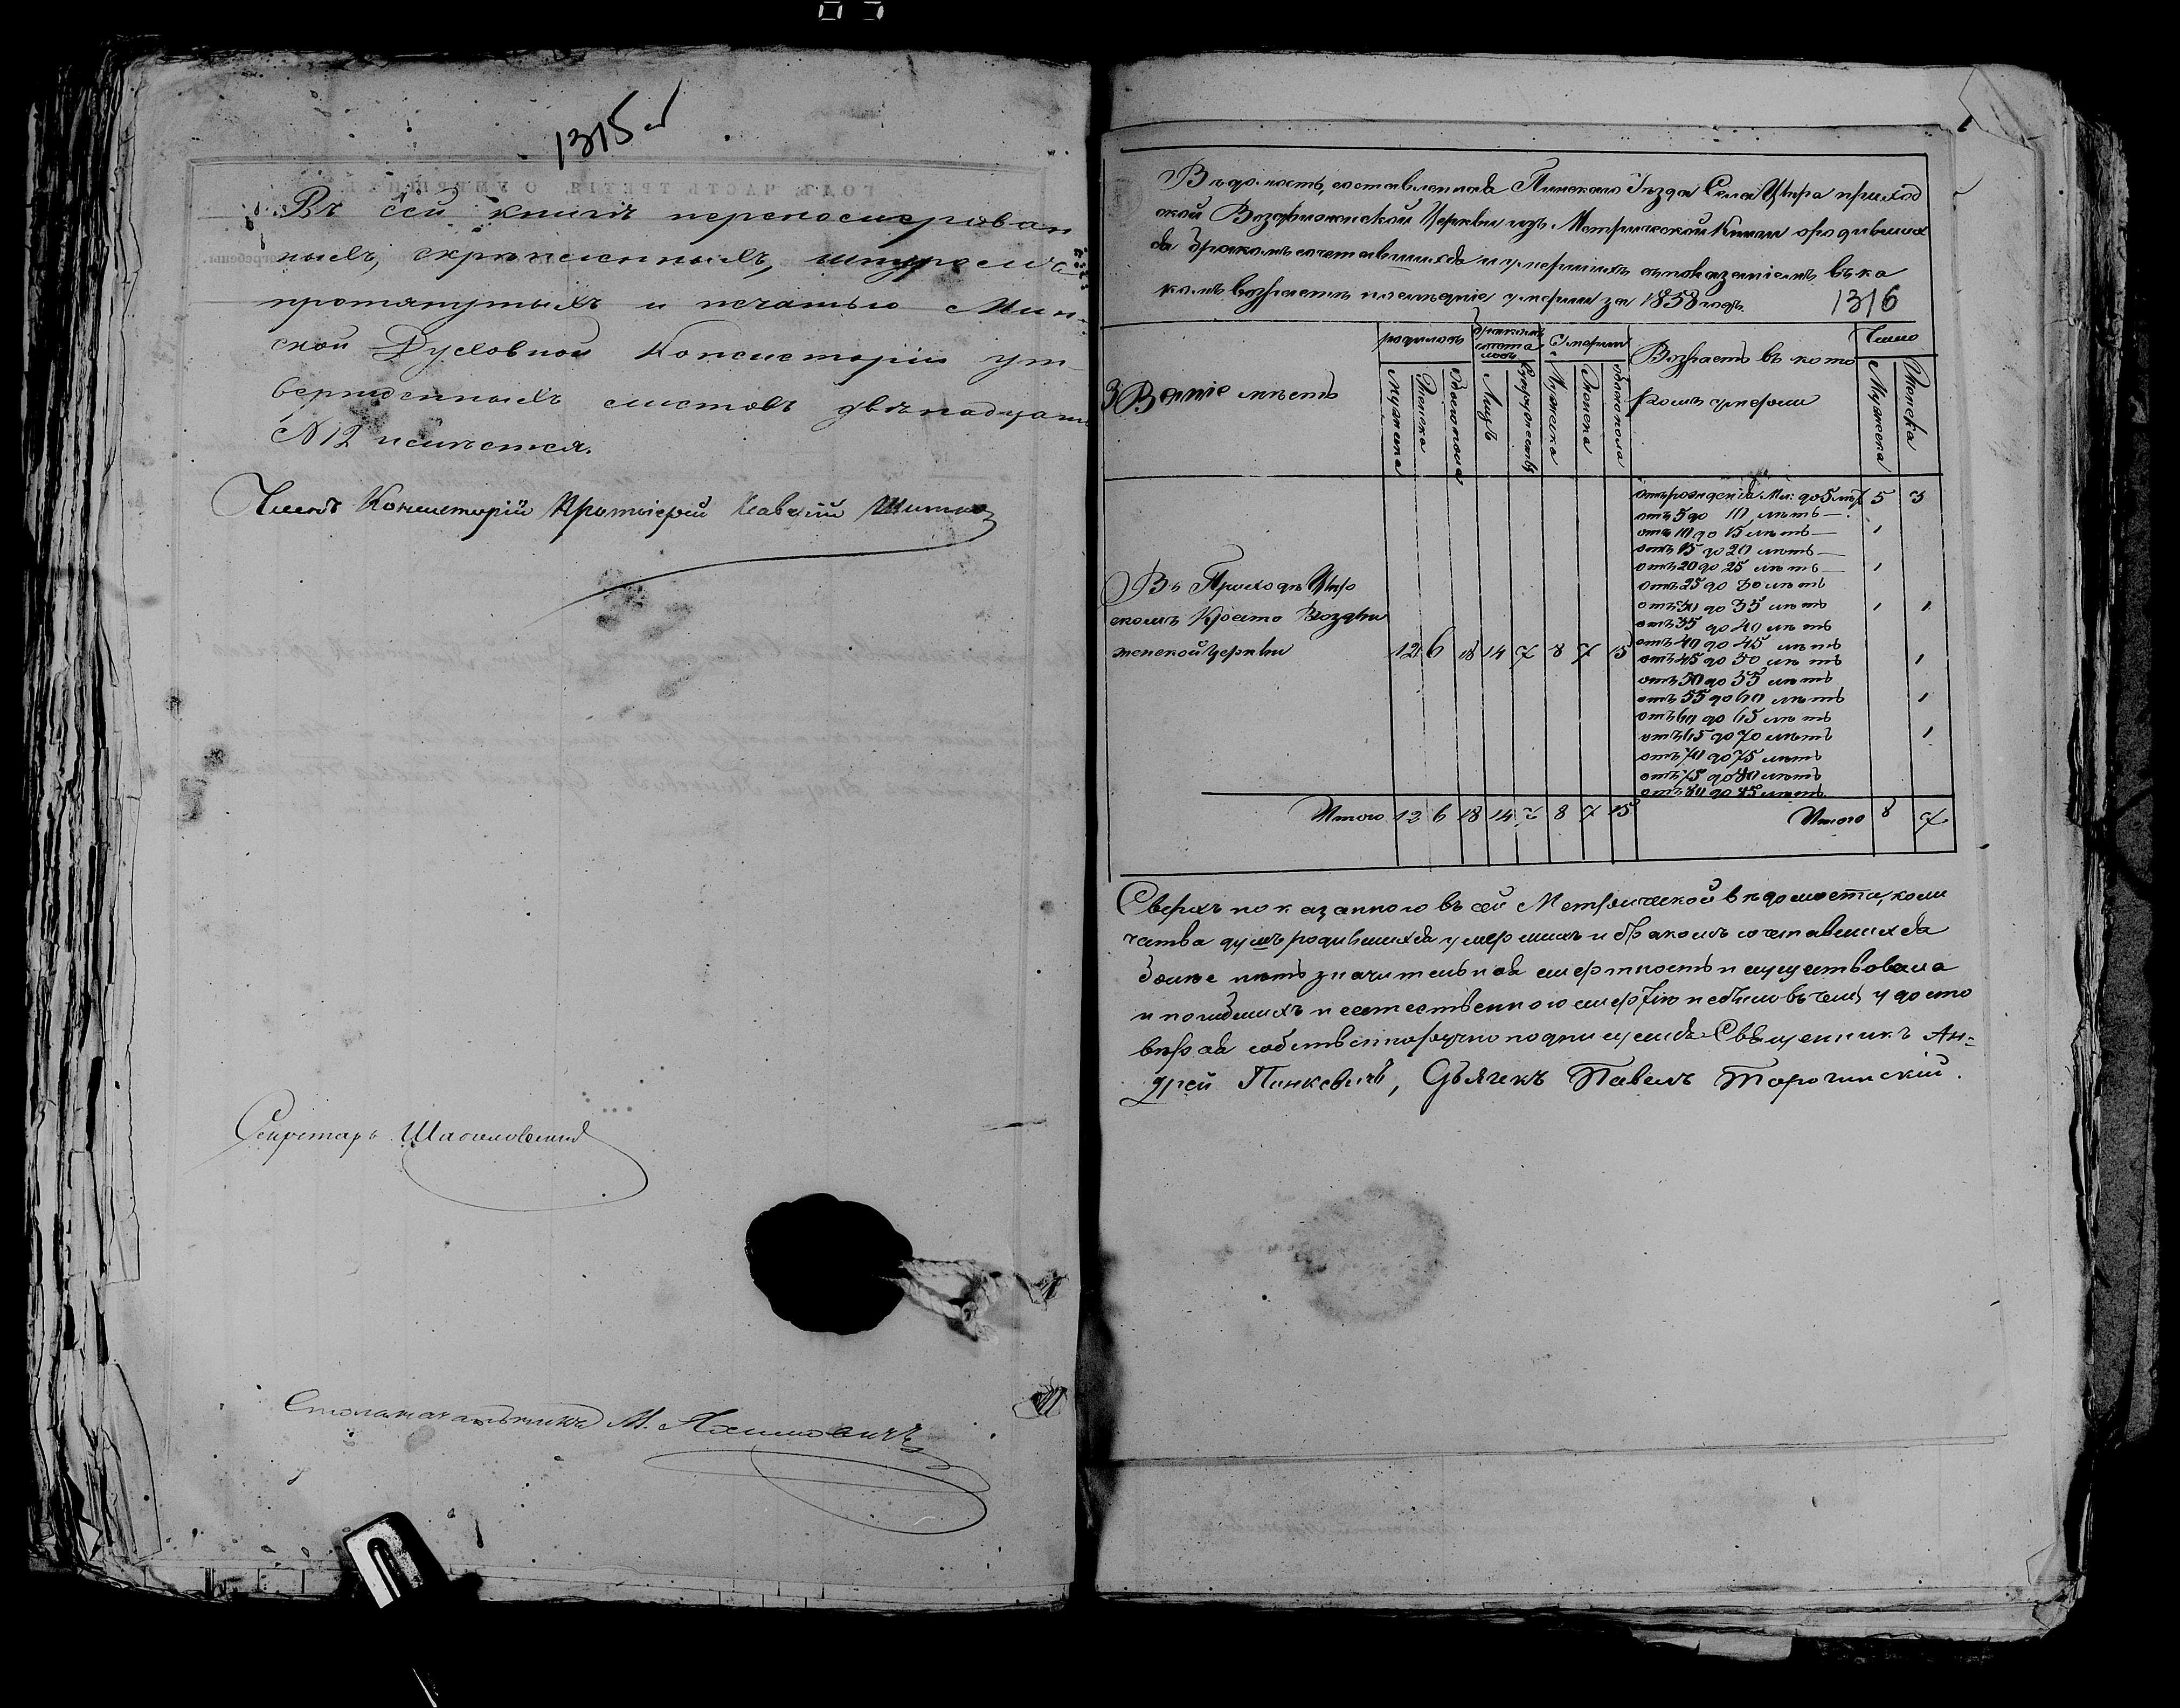 1315 об
Въ сей книгѣ перенумерован
ныхъ, скрѣпленныхъ, шнуромъ
протянутыхъ и печатью Мин-
ской Духовной Консисторіи ут-
вержденныхъ листовъ двѣнадцать
N 12 имѣется.
Членъ Консисторіи Протоіерей
Секретарь
Столоначальникъ М.
Вѣдомость, составленная Пинскаго Уѣзда Села Цыра приход
ской Воздвиженской Церкви изъ Метрической Книги о родивших
ся бракомъ сочетавшихся и умершихъ съ показаніемъ въ ка
комъ возрастѣ послѣдніе умерли за 1858 годъ.
1316
Званіе мѣстъ
родилось
бракомъ сочета лось
Умерло
Возрастъ въ кото
ромъ умерли
Число
Мужеска
Женска
Обоего пола
Лицъ
Супружествъ
Мужеска
Женска
Обоего пола
Мужеска
Женска
отъ рожденія Мл: до 5 лѣтъ 5 3
отъ 5 до 10 лѣтъ —
отъ 10 до 15 лѣтъ — 1
отъ 15 до 20 лѣтъ —
отъ 20 до 25 лѣтъ — 1
отъ 25 до 30 лѣтъ
отъ 30 до 35 лѣтъ 1 1
отъ 35 до 40 лѣтъ
отъ 40 до 45 лѣтъ
отъ 45 до 50 лѣтъ 1
отъ 50 до 55 лѣтъ
отъ 55 до 60 лѣтъ 1
отъ 60 до 65 лѣтъ
отъ 65 до 70 лѣтъ 1
отъ 70 до 75 лѣтъ
отъ 75 до 80 лѣтъ
отъ 80 до 85 лѣтъ
Въ Приходѣ Цыр
скомъ Кресто Воздви
женской Церкви 12 6 18 14 7 8 7 15
Итого 12 6 18 14 7 8 7 15 Итого 8 7
Сверхъ показаннаго въ сей Метрической вѣдомости, коли
чества душъ родившихся умершихъ и бракомъ сочетавшихся
болѣе нѣтъ значительная смертность не существовала
и погибшихъ неестественною смертію не было въ чемъ удосто
вѣряя собственноручно подписуемся Священникъ Ан-
дрей Пинкевичъ, Дьячекъ Павелъ Торочинскій.